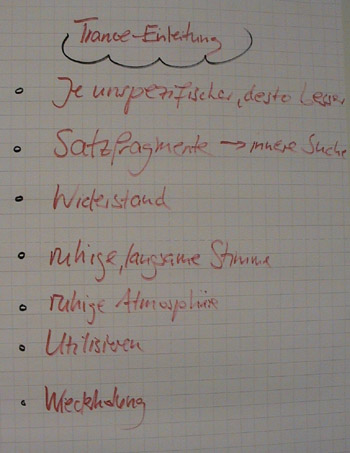 Trance-Einleitung
Je unspezifischer, desto besser
Satzfragmente → innere Suche
Widerstand
ruhige, langsame Stimme
ruhige Atmosphäre
Utilisieren